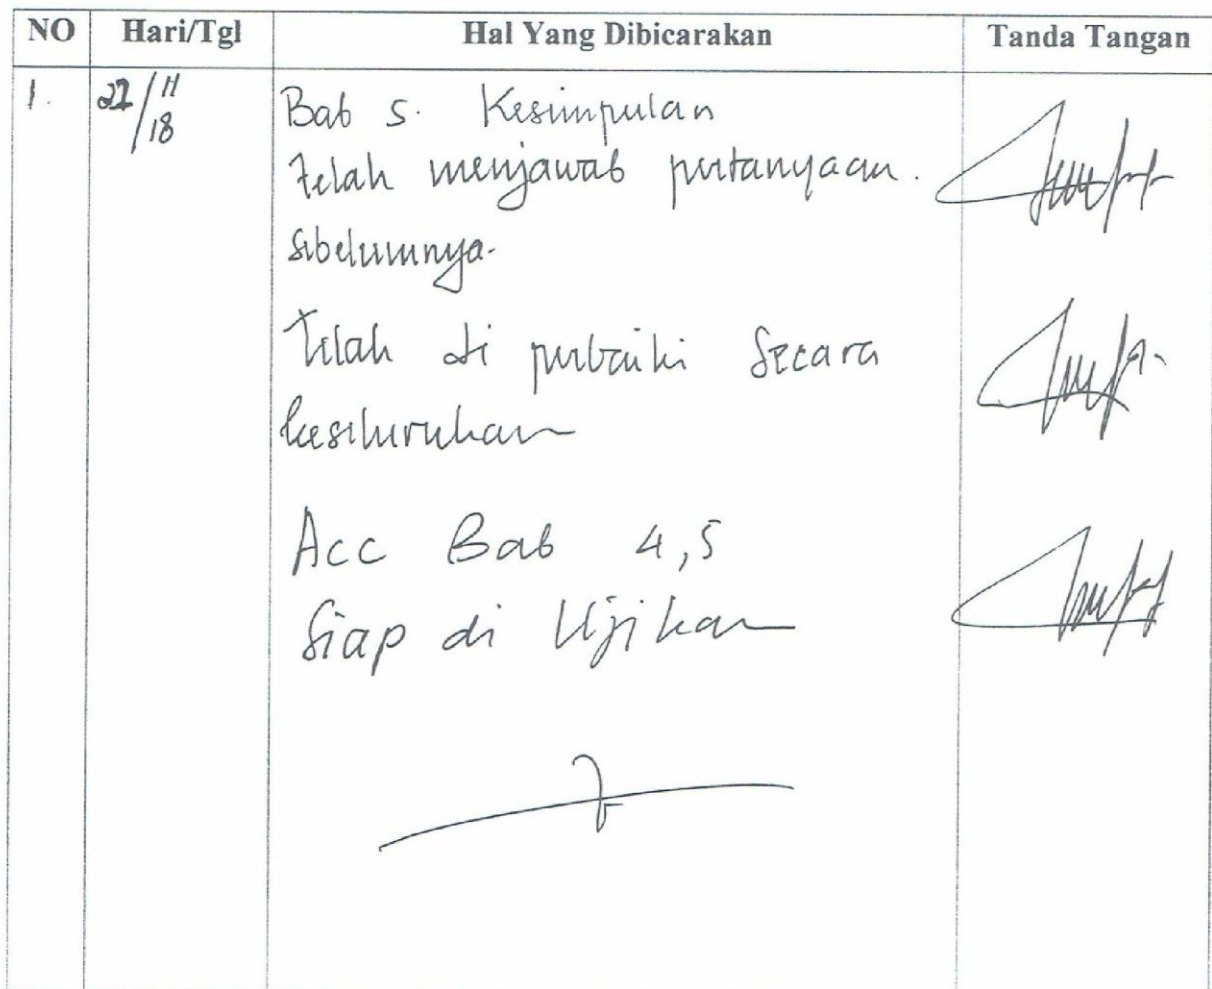 NO Hari/Tgl Hal Yang Dibicarakan Tanda Tangan
1. 22/11/18 Bab 5. Kesimpulan
telah menjawab pertanyaan.
sebelumnya.
Telah di perbaiki secara
keseluruhan
Acc Bab 4,5
Siap di Ujikan